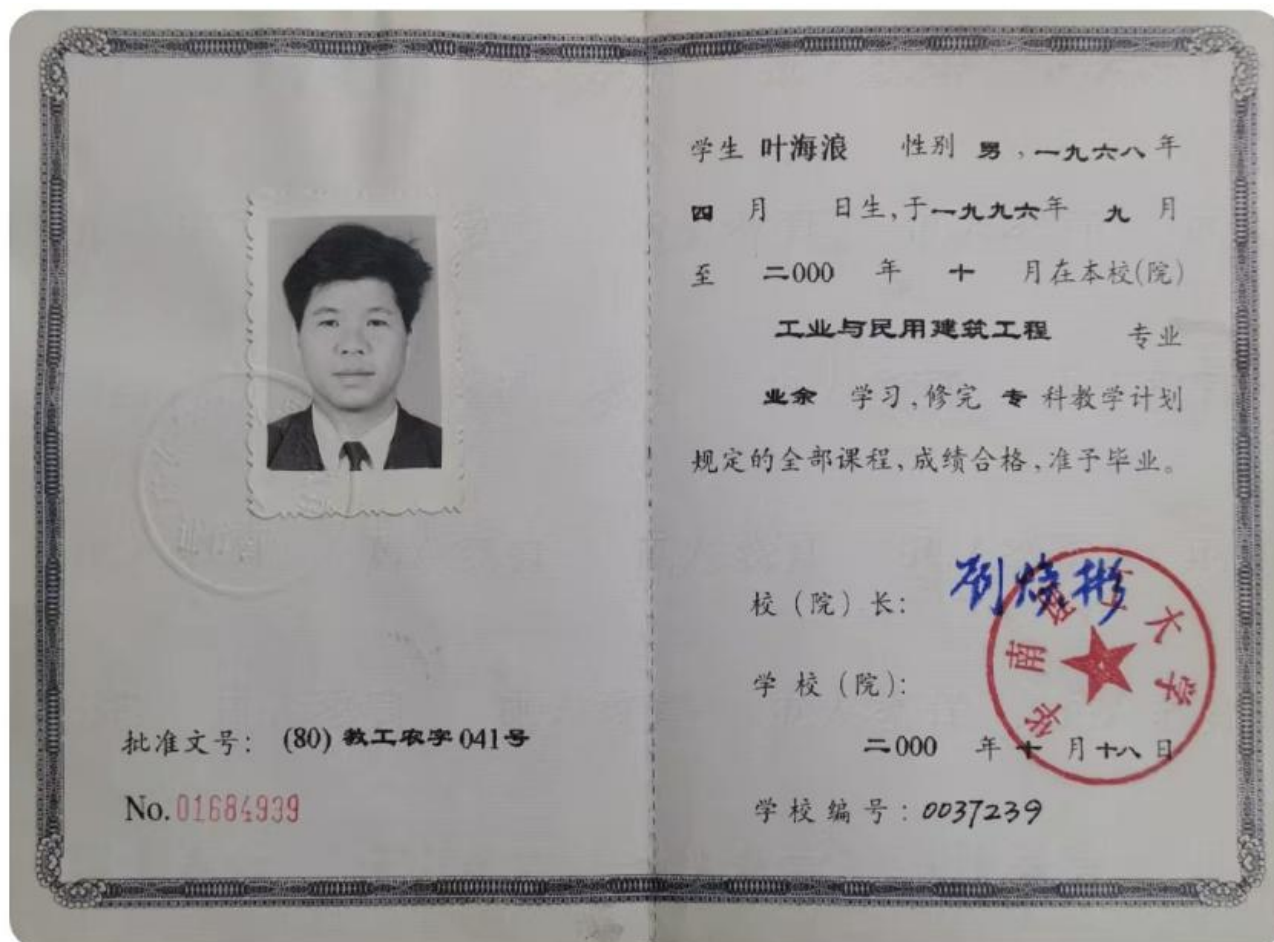 批准文号: (80) 教工农字 041号
No. 01684939
学生 叶海浪 性别 男,一九六八年
四 月 日生,于一九九六年 九 月
至 二000 年 十 月在本校(院)
工业与民用建筑工程 专业
业余 学习,修完 专 科教学计划
规定的全部课程,成绩合格,准予毕业。
校(院)长: 刘焕彬
学校(院):
华南理工大学
二000 年 十 月十八日
学校编号:0037239